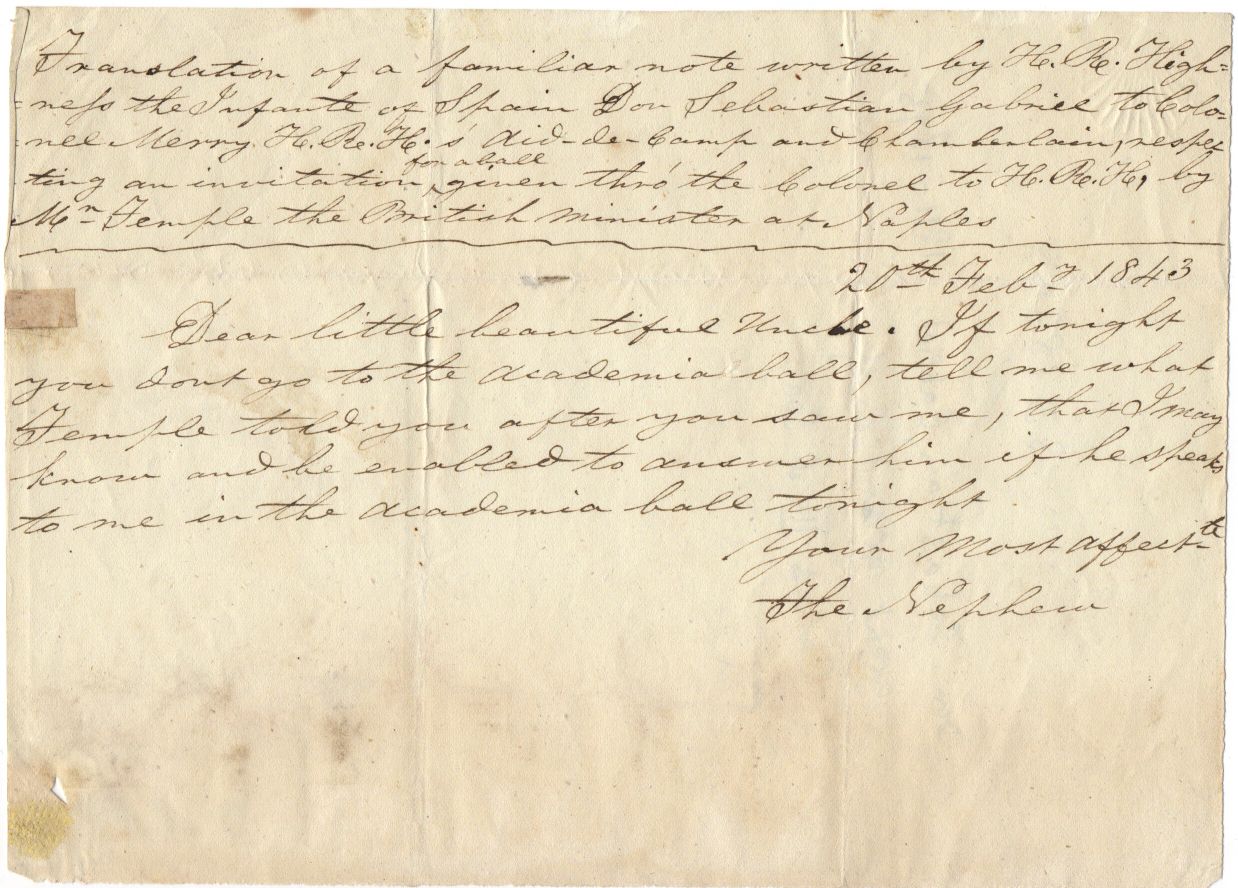 Translation of a familiar note written by H. R. High=
=ness the Infante of Spain Don Sebastian Gabriel to Colo=
=nel Merry H. R. H.'s Aid-de-Camp and Chamberlain, respec-
ting an invitation for a ball given thro' the Colonel to H. R. H, by
Mr Temple the British Minister at Naples
20th Feby 1843
Dear little beautiful Uncle. If tonight
you dont go to the academia ball, tell me what
Temple told you after you saw me, that I may
know and be enabled to answer him if he speaks
to me in the academia ball tonight
Your Most affectte
The Nephew